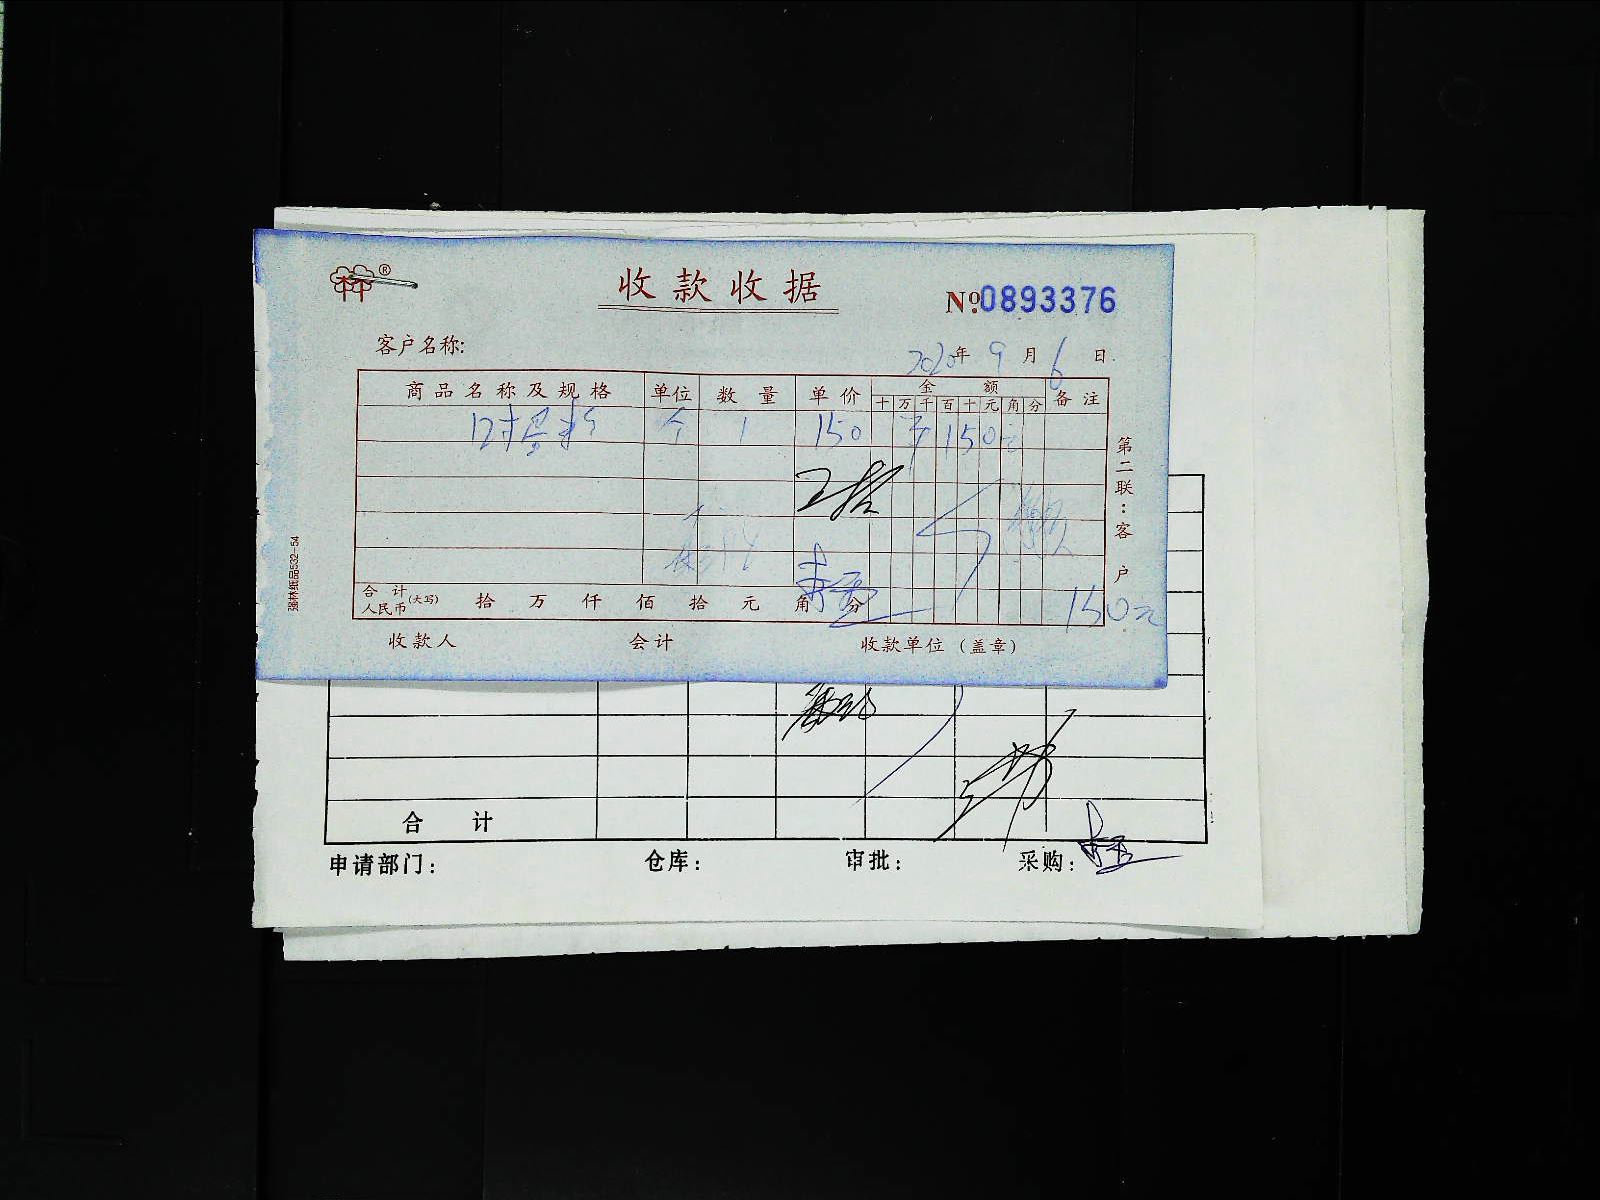 ®
收款收据
№:0893376
客户名称:
2020年 9月 6日
商品名称及规格 单位 数量 单价 金额 备注
十 万 千 百 十 元 角 分
12寸 个 1 150 150元
第二联:客户
强林纸品532-54
合计人民币(大写) 拾 万 仟 佰 拾 元 角 分 150元
收款人 会计 收款单位(盖章)
合计
申请部门: 仓库: 审批: 采购: